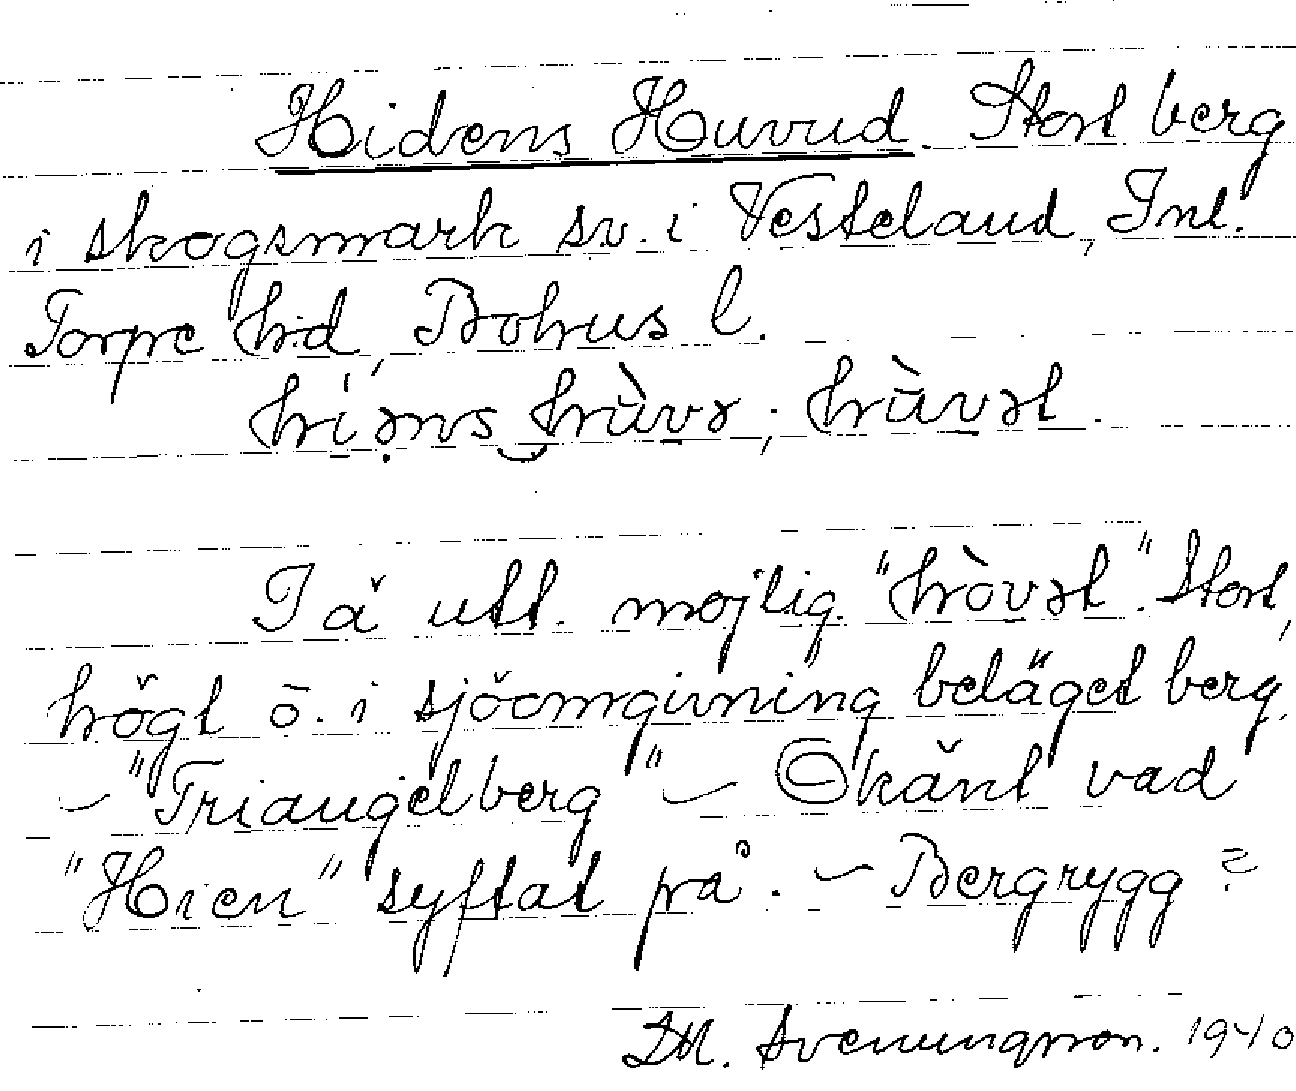 Hidens Huvud. Stort berg
i skogsmark sv. i Vesteland, Inl.
Torpe hd, Bohus l.
hi´əns hùvə; hùvət.
I ä utt. möjlig. "hòvət". Stort,
högt ö. i sjöomgivning beläget berg.
– "Triangelberg" – Okänt vad
"Hien" syftat på. – Bergrygg?
Svenungsson. 1940